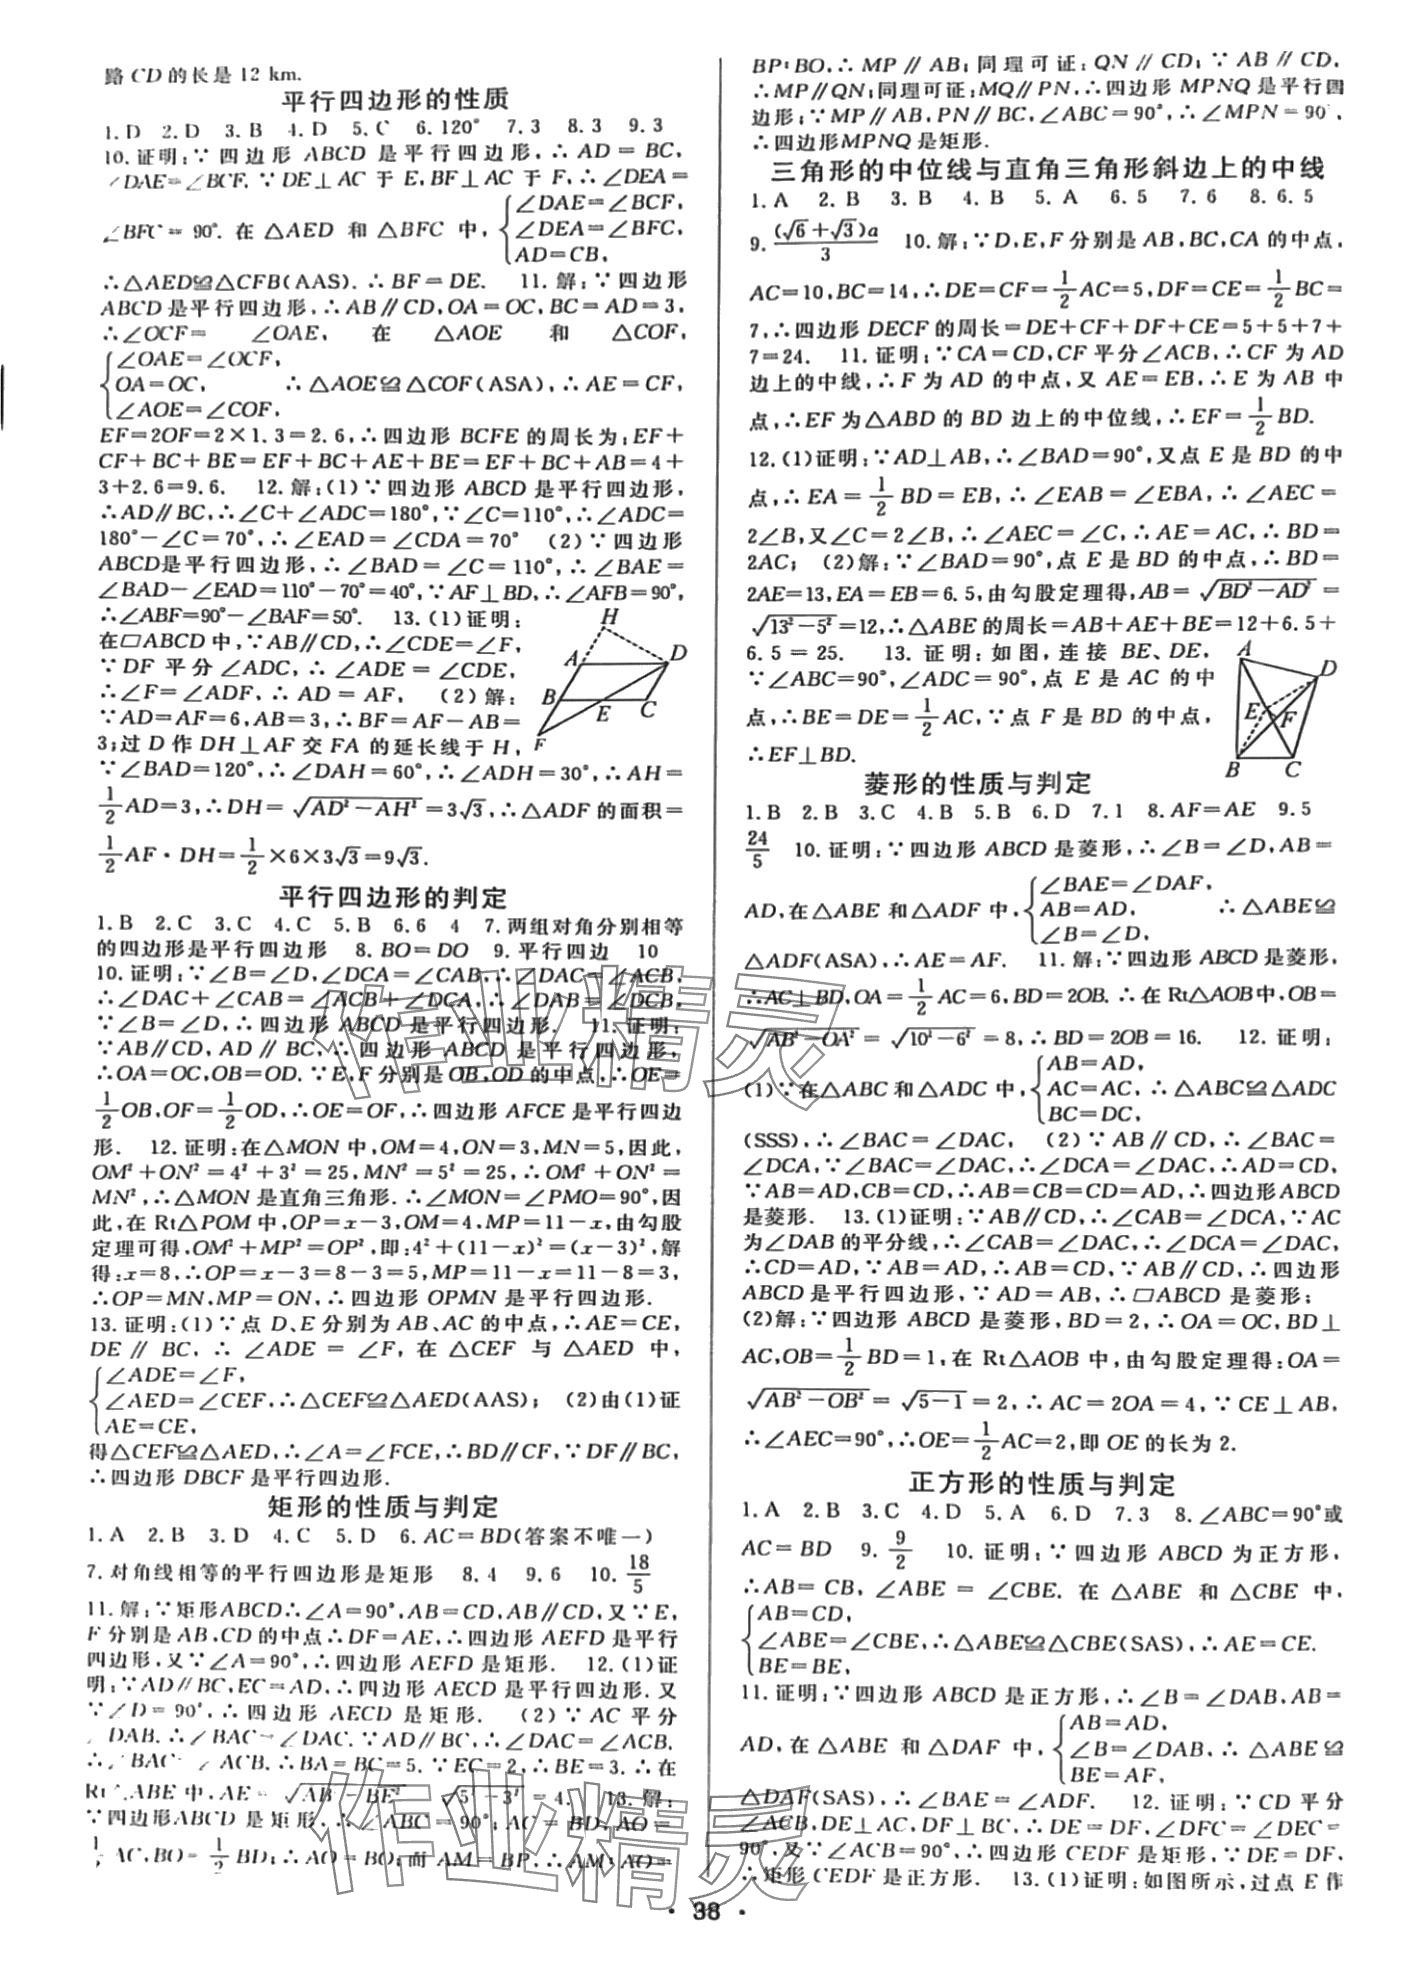 路 CD 的长是 12 km.
平行四边形的性质
1. D 2. D 3. B 4. D 5. C 6. 120° 7. 3 8. 3 9. 3
10. 证明:∵ 四边形 ABCD 是平行四边形,∴ AD = BC,
∠DAE=∠BCF. ∵ DE⊥AC 于 E,BF⊥AC 于 F,∴ ∠DEA =
∠BFC = 90°. 在 △AED 和 △BFC 中, {∠DAE=∠BCF, ∠DEA=∠BFC, AD=CB,
∴△AED≌△CFB(AAS). ∴ BF = DE. 11. 解:∵ 四边形
ABCD 是平行四边形,∴AB∥CD,OA=OC,BC=AD=3,
∴∠OCF= ∠OAE, 在 △AOE 和 △COF,
{∠OAE=∠OCF, OA=OC, ∠AOE=∠COF, ∴△AOE≌△COF(ASA),∴AE=CF,
EF=2OF=2×1.3=2.6,∴四边形 BCFE 的周长为:EF+
CF+BC+BE=EF+BC+AE+BE=EF+BC+AB=4+
3+2.6=9.6. 12. 解:(1)∵四边形 ABCD 是平行四边形,
∴AD∥BC,∴∠C+∠ADC=180°,∵∠C=110°,∴∠ADC=
180°-∠C=70°,∴∠EAD=∠CDA=70° (2)∵四边形
ABCD是平行四边形,∴∠BAD=∠C=110°,∴∠BAE=
∠BAD-∠EAD=110°-70°=40°,∵AF⊥BD,∴∠AFB=90°,
∴∠ABF=90°-∠BAF=50°. 13. (1)证明:
在□ABCD中,∵AB∥CD,∴∠CDE=∠F,
∵ DF 平分 ∠ADC,∴ ∠ADE = ∠CDE,
∴∠F=∠ADF,∴ AD = AF, (2)解:
∵AD=AF=6,AB=3,∴BF=AF-AB=
3;过 D 作 DH⊥AF 交 FA 的延长线于 H,
H
A
D
B
E
C
F
∵∠BAD=120°,∴∠DAH=60°,∴∠ADH=30°,∴AH=
1/2AD=3,∴DH=√(AD²-AH²)=3√3,∴△ADF 的面积=
1/2AF·DH=1/2×6×3√3=9√3.
平行四边形的判定
1. B 2. C 3. C 4. C 5. B 6. 6 4 7. 两组对角分别相等
的四边形是平行四边形 8. BO=DO 9. 平行四边 10
10. 证明:∵∠B=∠D,∠DCA=∠CAB,∴∠DAC=∠ACB,
∴∠DAC+∠CAB=∠ACB+∠DCA,∴∠DAB=∠DCB,
∵∠B=∠D,∴四边形 ABCD 是平行四边形. 11. 证明:
∵AB∥CD,AD∥BC,∴四边形 ABCD 是平行四边形,
∴OA=OC,OB=OD. ∵E,F 分别是 OB,OD 的中点,∴OE=
1/2OB,OF=1/2OD,∴OE=OF,∴四边形 AFCE 是平行四边
形. 12. 证明:在△MON 中,OM=4,ON=3,MN=5,因此,
OM²+ON²=4²+3²=25,MN²=5²=25,∴OM²+ON²=
MN²,∴△MON 是直角三角形. ∴∠MON=∠PMO=90°,因
此,在 Rt△POM 中,OP=x-3,OM=4,MP=11-x,由勾股
定理可得,OM²+MP²=OP²,即:4²+(11-x)²=(x-3)²,解
得:x=8,∴OP=x-3=8-3=5,MP=11-x=11-8=3,
∴OP=MN,MP=ON,∴四边形 OPMN 是平行四边形.
13. 证明:(1)∵点 D、E 分别为 AB、AC 的中点,∴AE=CE,
DE∥BC,∴∠ADE=∠F,在△CEF 与△AED 中,
{∠ADE=∠F, ∠AED=∠CEF, AE=CE, ∴△CEF≌△AED(AAS); (2)由(1)证
得△CEF≌△AED,∴∠A=∠FCE,∴BD∥CF,∵DF∥BC,
∴四边形 DBCF 是平行四边形.
矩形的性质与判定
1. A 2. B 3. D 4. C 5. D 6. AC=BD(答案不唯一)
7. 对角线相等的平行四边形是矩形 8. 4 9. 6 10. 18/5
11. 解:∵矩形ABCD∴∠A=90°,AB=CD,AB∥CD,又∵E,
F 分别是 AB,CD 的中点∴DF=AE,∴四边形 AEFD 是平行
四边形,又∵∠A=90°,∴四边形 AEFD 是矩形. 12. (1)证
明:∵AD∥BC,EC=AD,∴四边形 AECD 是平行四边形. 又
∵∠D=90°,∴四边形 AECD 是矩形. (2)∵ AC 平分
∠DAB. ∴∠BAC=∠DAC. ∵AD∥BC,∴∠DAC=∠ACB.
∴∠BAC=∠ACB. ∴BA=BC=5. ∵EC=2,∴BE=3. ∴在
Rt△ABE 中,AE=√(AB²-BE²) √(5²-3²)=4. 13. 解:
∵四边形ABCD 是矩形,∴∠ABC=90°,AC=BD,AO=
AC,BO=1/2BD,∴AO=BO,而 AM=BP,∴AM:AO=
BP:BO,∴MP∥AB;同理可证:QN∥CD;∵AB∥CD,
∴MP∥QN;同理可证:MQ∥PN,∴四边形 MPNQ 是平行四
边形;∵MP∥AB,PN∥BC,∠ABC=90°,∴∠MPN=90°,
∴四边形MPNQ 是矩形.
三角形的中位线与直角三角形斜边上的中线
1. A 2. B 3. B 4. B 5. A 6. 5 7. 6 8. 6.5
9. (√6+√3)a/3 10. 解:∵D,E,F 分别是 AB,BC,CA 的中点,
AC=10,BC=14,∴DE=CF=1/2AC=5,DF=CE=1/2BC=
7,∴四边形 DECF 的周长=DE+CF+DF+CE=5+5+7+
7=24. 11. 证明:∵CA=CD,CF 平分∠ACB,∴CF 为 AD
边上的中线,∴F 为 AD 的中点,又 AE=EB,∴E 为 AB 中
点,∴EF 为△ABD 的 BD 边上的中位线,∴EF=1/2BD.
12. (1)证明:∵AD⊥AB,∴∠BAD=90°,又点 E 是 BD 的中
点,∴EA=1/2BD=EB,∴∠EAB=∠EBA,∴∠AEC=
2∠B,又∠C=2∠B,∴∠AEC=∠C,∴AE=AC,∴BD=
2AC; (2)解:∵∠BAD=90°,点 E 是 BD 的中点,∴BD=
2AE=13,EA=EB=6.5,由勾股定理得,AB=√(BD²-AD²)=
√(13²-5²)=12,∴△ABE 的周长=AB+AE+BE=12+6.5+
6.5=25. 13. 证明:如图,连接 BE、DE,
∵∠ABC=90°,∠ADC=90°,点 E 是 AC 的中
点,∴BE=DE=1/2AC,∵点 F 是 BD 的中点,
∴EF⊥BD.
A
D
E
F
B
C
菱形的性质与判定
1. B 2. B 3. C 4. B 5. B 6. D 7. 1 8. AF=AE 9. 5
24/5 10. 证明:∵四边形 ABCD 是菱形,∴∠B=∠D,AB=
AD,在△ABE 和△ADF 中, {∠BAE=∠DAF, AB=AD, ∠B=∠D, ∴△ABE≌
△ADF(ASA),∴AE=AF. 11. 解:∵四边形 ABCD 是菱形,
∴AC⊥BD,OA=1/2AC=6,BD=2OB. ∴在 Rt△AOB中,OB=
√(AB²-OA²)=√(10²-6²)=8,∴BD=2OB=16. 12. 证明:
(1)∵在△ABC 和△ADC 中, {AB=AD, AC=AC, BC=DC, ∴△ABC≌△ADC
(SSS),∴∠BAC=∠DAC, (2)∵AB∥CD,∴∠BAC=
∠DCA,∵∠BAC=∠DAC,∴∠DCA=∠DAC,∴AD=CD,
∵AB=AD,CB=CD,∴AB=CB=CD=AD,∴四边形ABCD
是菱形. 13. (1)证明:∵AB∥CD,∴∠CAB=∠DCA,∵AC
为∠DAB 的平分线,∴∠CAB=∠DAC,∴∠DCA=∠DAC,
∴CD=AD,∵AB=AD,∴AB=CD,∵AB∥CD,∴四边形
ABCD 是平行四边形,∵AD=AB,∴□ABCD 是菱形;
(2)解:∵四边形 ABCD 是菱形,BD=2,∴OA=OC,BD⊥
AC,OB=1/2BD=1,在 Rt△AOB 中,由勾股定理得:OA=
√(AB²-OB²)=√(5-1)=2,∴AC=2OA=4,∵CE⊥AB,
∴∠AEC=90°,∴OE=1/2AC=2,即 OE 的长为 2.
正方形的性质与判定
1. A 2. B 3. C 4. D 5. A 6. D 7. 3 8. ∠ABC=90°或
AC=BD 9. 9/2 10. 证明:∵四边形 ABCD 为正方形,
∴AB=CB,∠ABE=∠CBE. 在△ABE 和△CBE 中,
{AB=CD, ∠ABE=∠CBE, BE=BE, ∴△ABE≌△CBE(SAS),∴AE=CE.
11. 证明:∵四边形 ABCD 是正方形,∴∠B=∠DAB,AB=
AD,在△ABE 和△DAF 中, {AB=AD, ∠B=∠DAB, BE=AF, ∴△ABE≌
△DAF(SAS),∴∠BAE=∠ADF. 12. 证明:∵CD 平分
∠ACB,DE⊥AC,DF⊥BC,∴DE=DF,∠DFC=∠DEC=
90°,又∵∠ACB=90°,∴四边形 CEDF 是矩形,∵DE=DF,
∴矩形 CEDF 是正方形. 13. (1)证明:如图所示,过点 E 作
· 38 ·
作业精灵
作业精灵